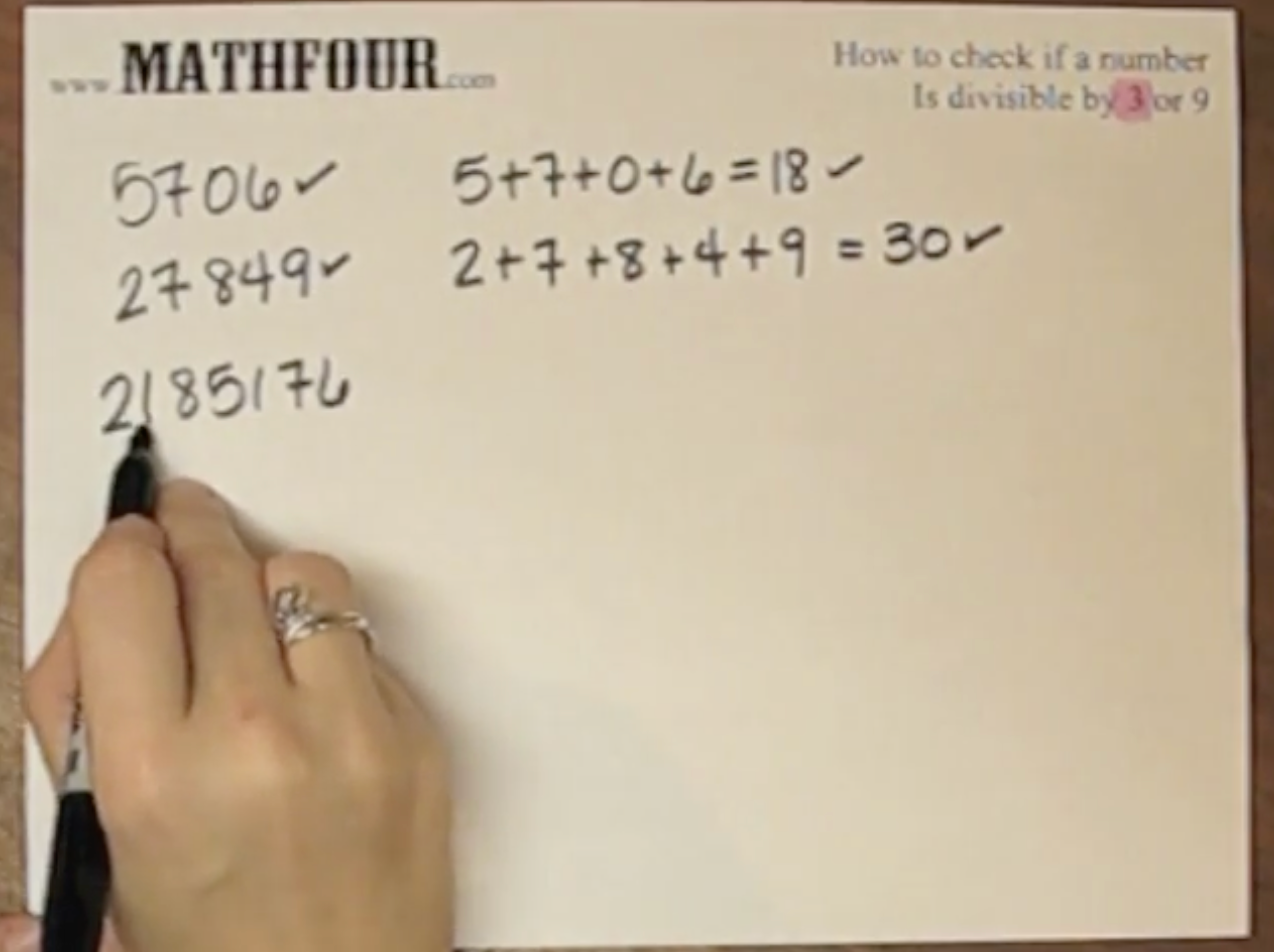 www.MATHFOUR.com
How to check if a number
Is divisible by 3 or 9
5706✓ 5+7+0+6=18✓
27849✓ 2+7+8+4+9=30✓
2185176